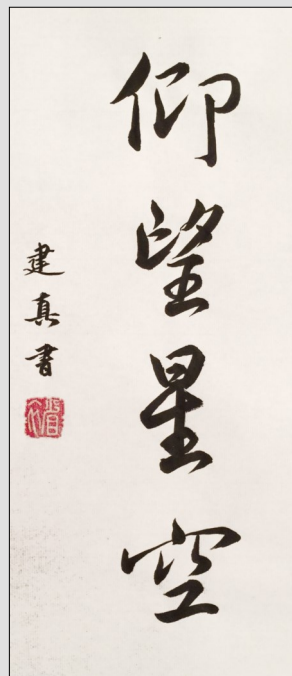 仰望星空
建真書